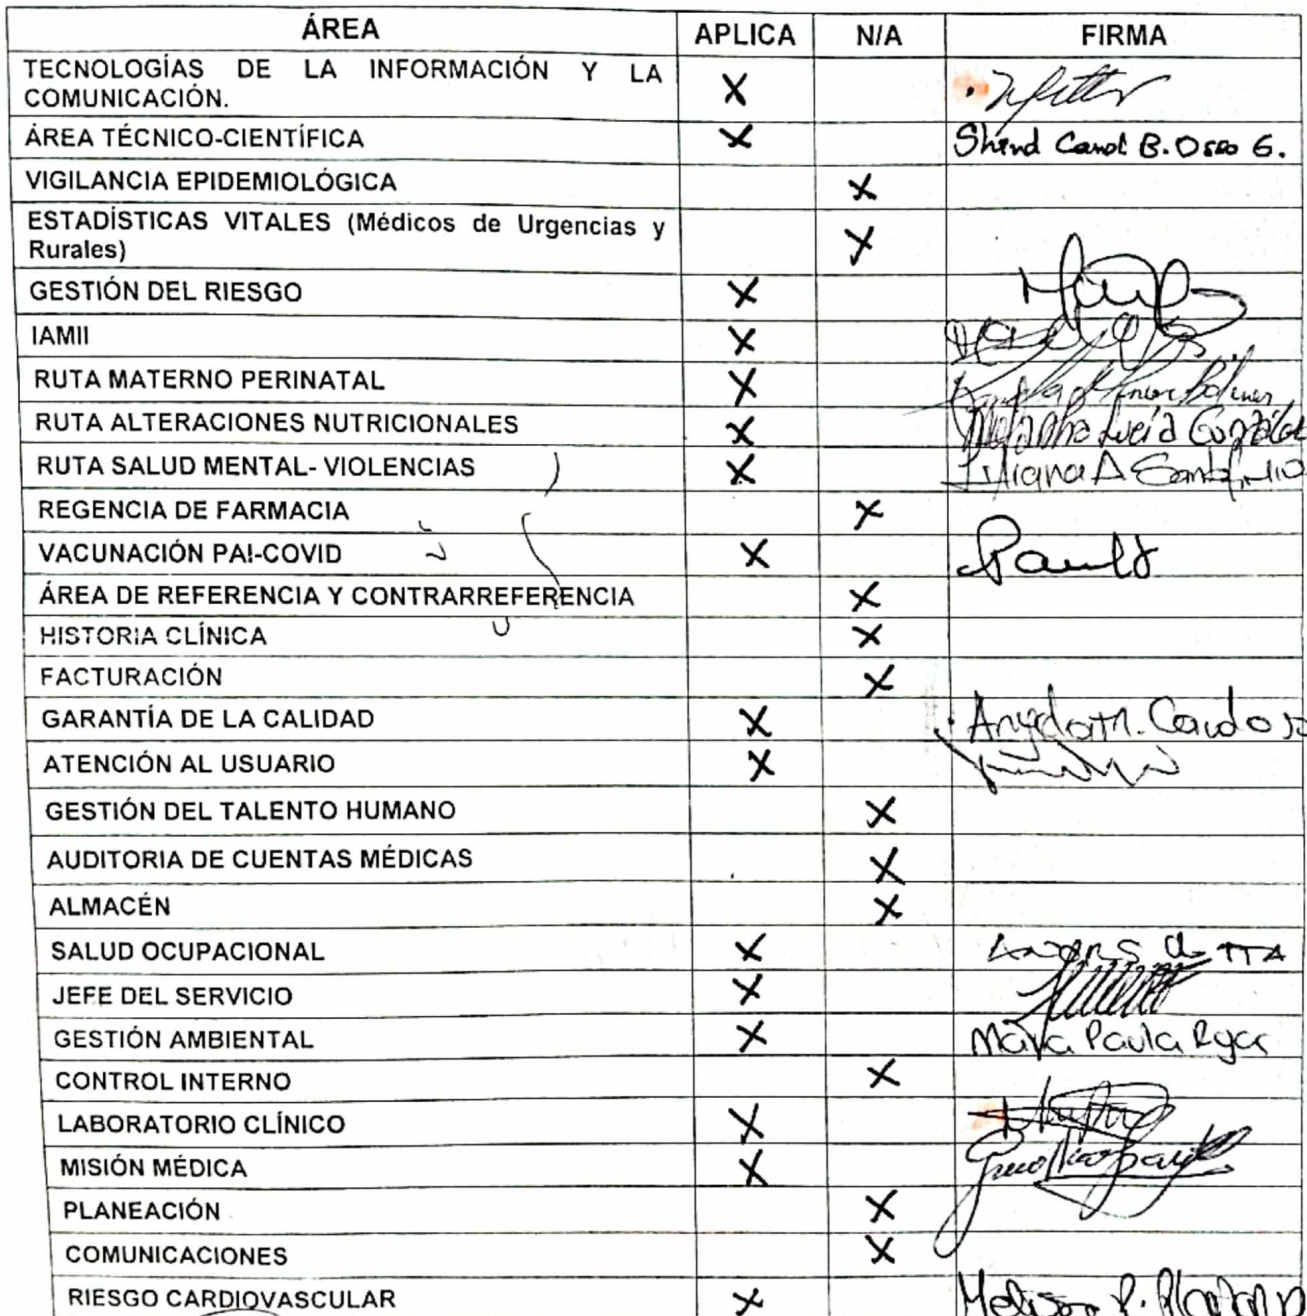 ÁREA APLICA N/A FIRMA
TECNOLOGÍAS DE LA INFORMACIÓN Y LA
COMUNICACIÓN. X
ÁREA TÉCNICO-CIENTÍFICA X B.
VIGILANCIA EPIDEMIOLÓGICA X
ESTADÍSTICAS VITALES (Médicos de Urgencias y
Rurales) X
GESTIÓN DEL RIESGO X
IAMII X
RUTA MATERNO PERINATAL X
RUTA ALTERACIONES NUTRICIONALES X Lucía González
RUTA SALUD MENTAL- VIOLENCIAS X Liliana A
REGENCIA DE FARMACIA X
VACUNACIÓN PAI-COVID X
ÁREA DE REFERENCIA Y CONTRARREFERENCIA X
HISTORIA CLÍNICA X
FACTURACIÓN X
GARANTÍA DE LA CALIDAD X
ATENCIÓN AL USUARIO X
GESTIÓN DEL TALENTO HUMANO X
AUDITORIA DE CUENTAS MÉDICAS X
ALMACÉN X
SALUD OCUPACIONAL X
JEFE DEL SERVICIO X
GESTIÓN AMBIENTAL X Paula
CONTROL INTERNO X
LABORATORIO CLÍNICO X
MISIÓN MÉDICA X
PLANEACIÓN X
COMUNICACIONES X
RIESGO CARDIOVASCULAR X